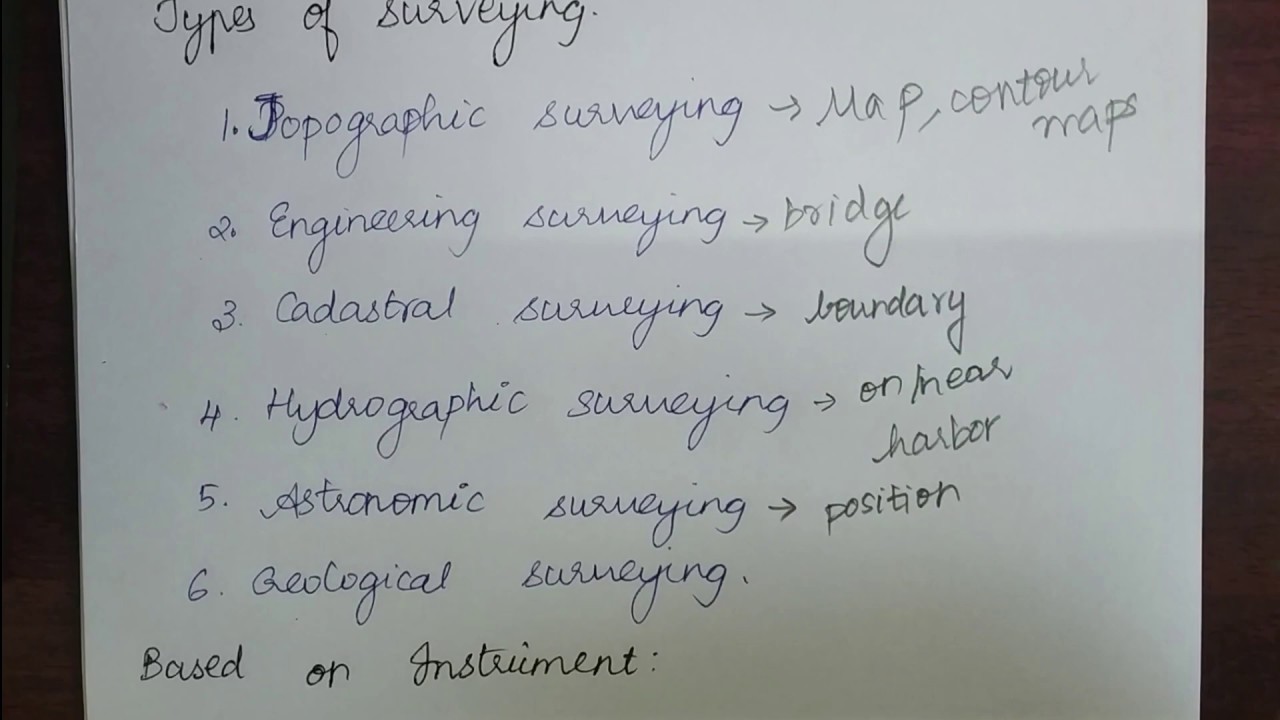 Types of surveying.
1. Topographic surveying → Map, contour
maps
2. Engineering surveying → bridge
3. Cadastral surveying → boundary
4. Hydrographic surveying → on/near
harbor
5. Astronomic surveying → position
6. Geological surveying.
Based on Instrument: